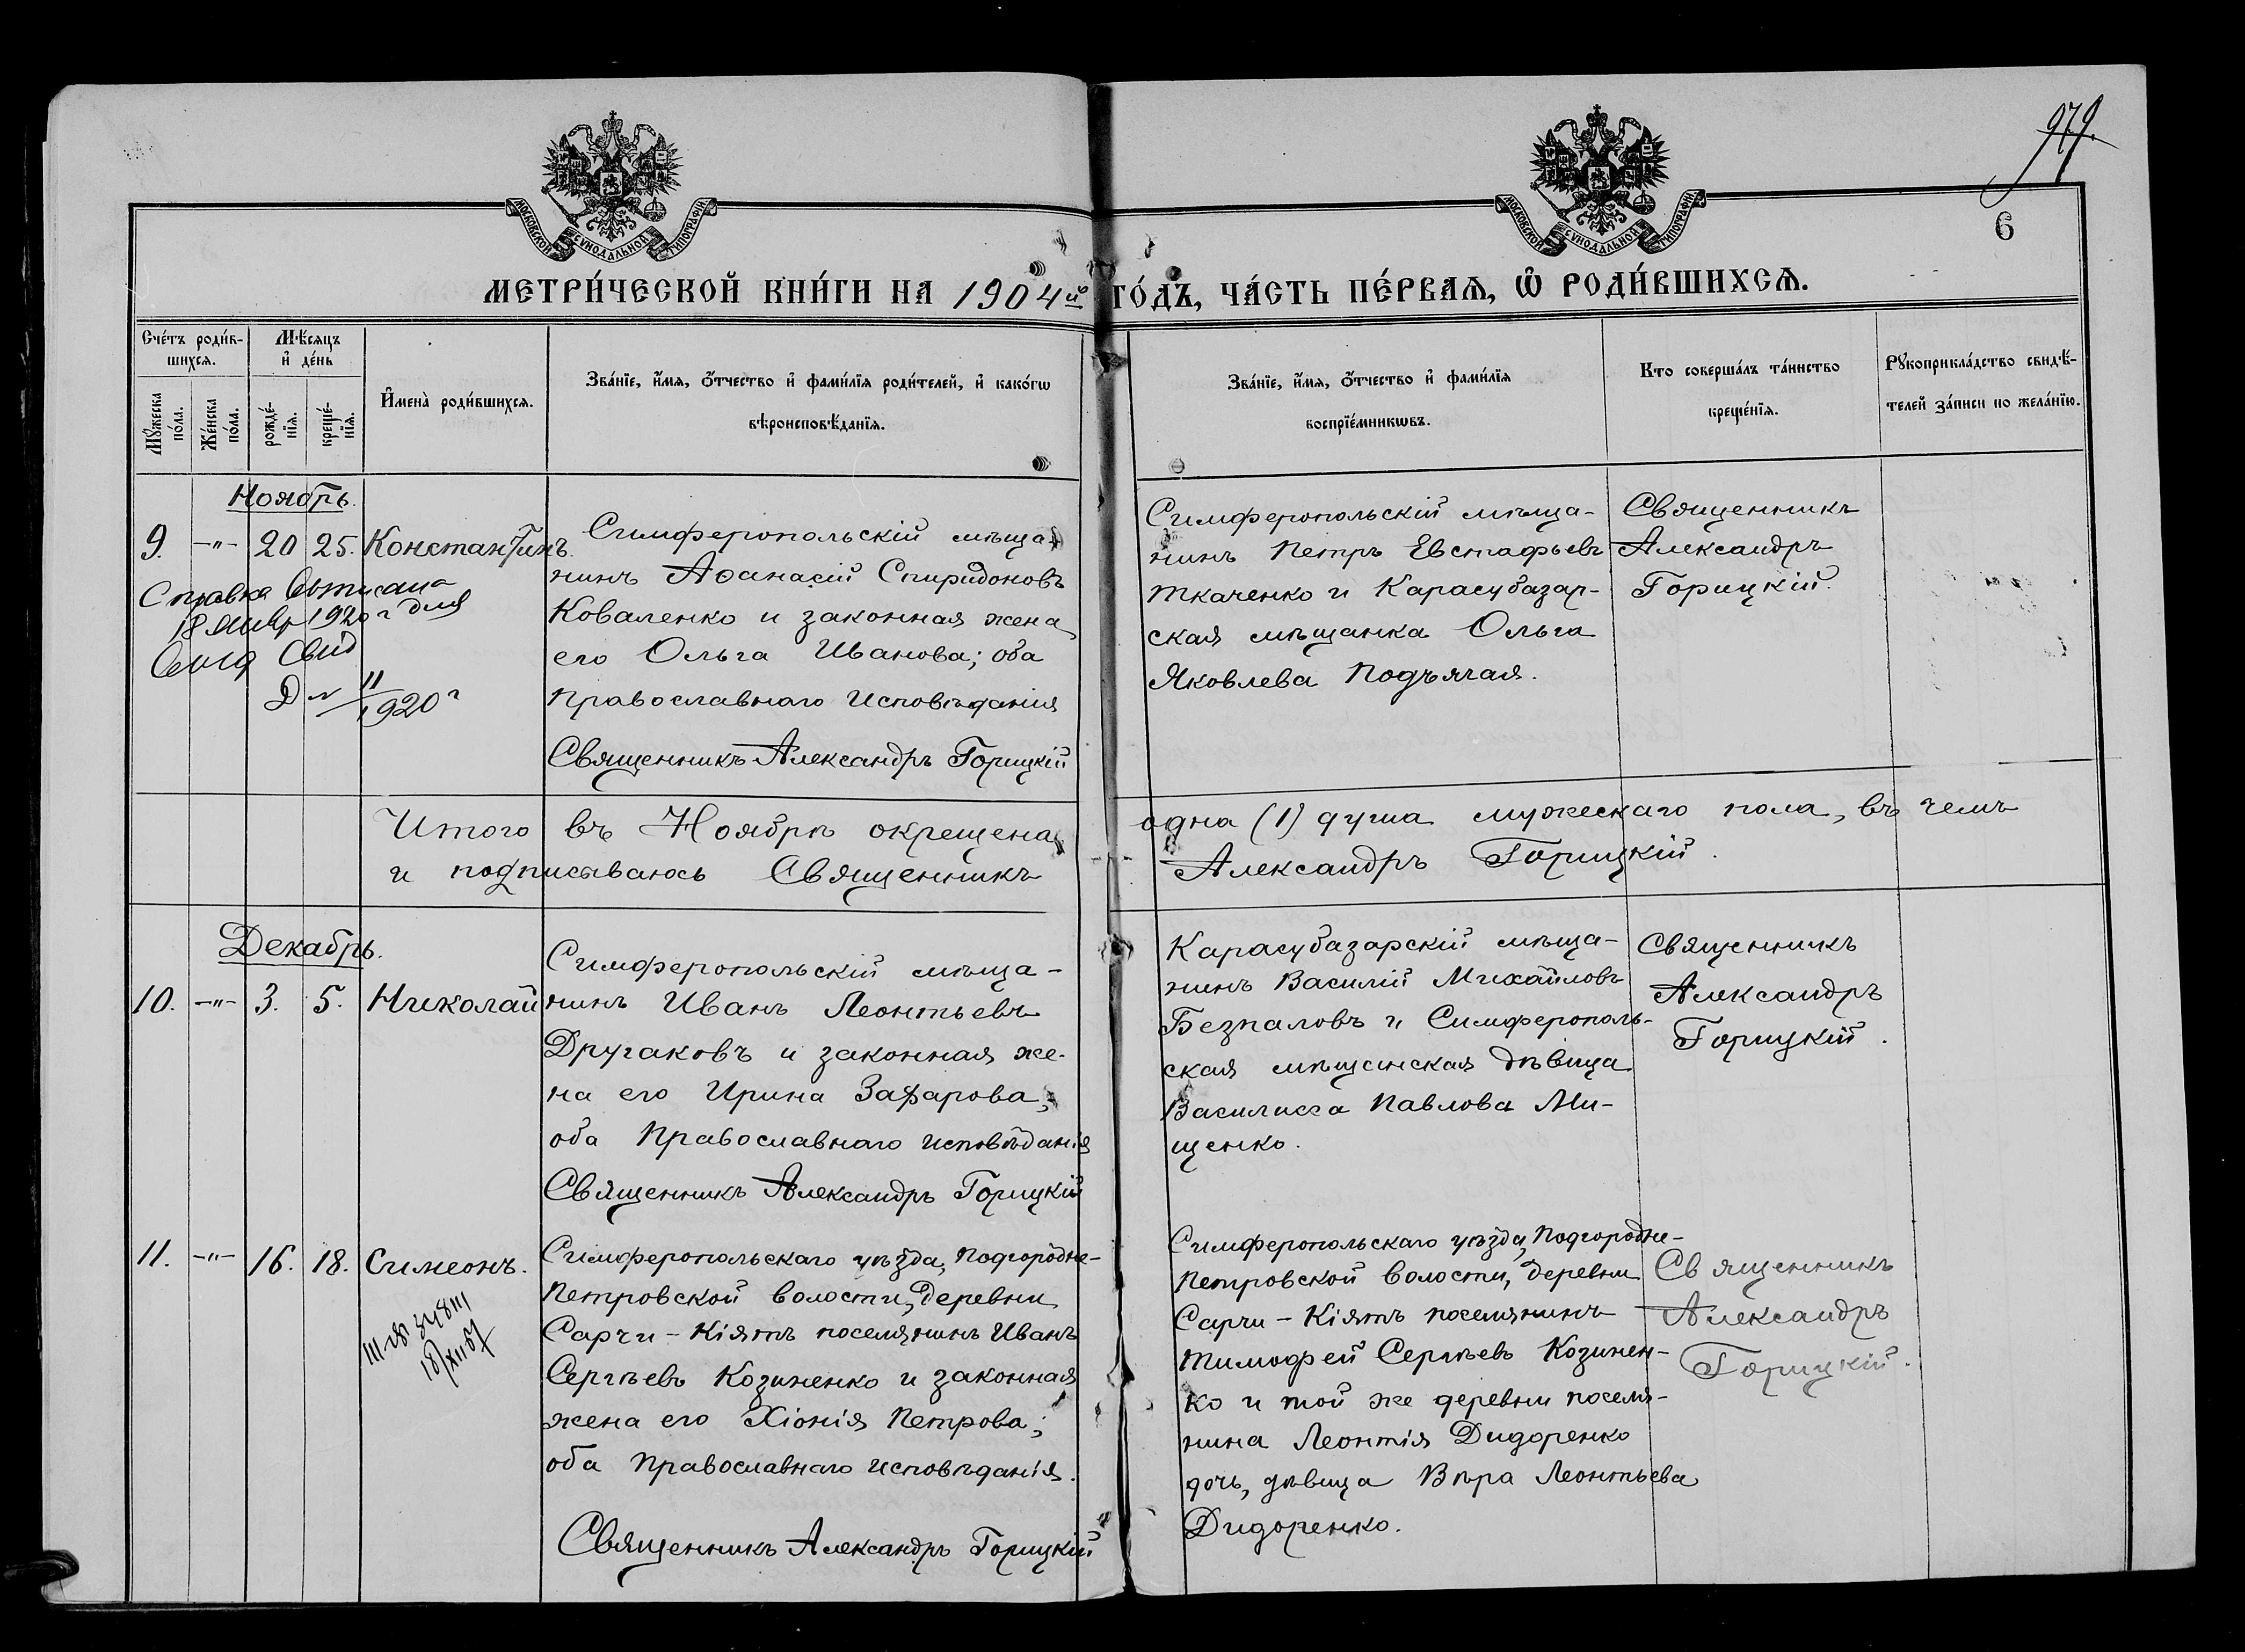 979.
6
МОСКОВСКОЙ СѴНОДАЛЬНОЙ ТИПОГРАФІИ
МОСКОВСКОЙ СѴНОДАЛЬНОЙ ТИПОГРАФІИ
МЕТРИ́ЧЕСКОЙ КНИ́ГИ НА 1904й ГО́ДЪ, ЧА́СТЬ ПЕ́РВАѦ, Ѽ РОДИ́ВШИХСѦ.
Сче́тъ роди́в-
шихсѧ.
Мѣ́сѧцъ
и҆ де́нь
Мꙋ́жеска
по́ла.
Же́нска
по́ла.
рожде́-
нїѧ.
креще́-
нїѧ.
И҆мена̀ роди́вшихсѧ.
Зва́нїе, и҆́мѧ, ѻ҆́тчество и҆ фами́лїѧ роди́телей, и҆ како́гѡ
вѣроисповѣ́данїѧ.
Зва́нїе, и҆́мѧ, ѻ҆́тчество и҆ фами́лїѧ
воспрїе́мникѡвъ.
Кто соверша́лъ та́инство
креще́нїѧ.
Рꙋкоприкла́дство свидѣ́-
телей за́писи по жела́нїю.
Ноябрь.
9. -"- 20 25. Константинъ.
Справка выписана
18 1920 г для
Свид
11
1920 г
Симферопольскій мѣща-
нинъ Аѳанасій Спиридоновъ
Коваленко и законная жена
его Ольга Иванова; оба
Православнаго Исповѣданія
Священникъ Александръ Горицкій
Симферопольскій мѣща-
нинъ Петръ Евстафьевъ
Ткаченко и Карасубазар-
ская мѣщанка Ольга
Яковлева Подъячая.
Священникъ
Александръ
Горицкій.
Итого въ Ноябрѣ окрещена одна (1) душа мужескаго пола, въ чемъ
и подписываюсь Священникъ Александръ Горицкій.
Декабрь.
10. -"- 3. 5. Николай
Симферопольскій мѣща-
нинъ Иванъ Леонтьевъ
Другаковъ и законная же-
на его Ирина Зафарова;
оба Православнаго исповѣданія
Священникъ Александръ Горицкій
Карасубазарскій мѣща-
нинъ Василій Михайловъ
Безпаловъ и Симферополь-
ская мѣщанская дѣвица
Василисса Павлова Ми-
щенко.
Священникъ
Александръ
Горицкій.
11. -"- 16. 18. Симеонъ.
Симферопольскаго уѣзда, Подгородне-
Петровской волости, деревни
Сарчи-Кіятъ поселянинъ Иванъ
Сергѣевъ Козиненко и законная
жена его Хіонія Петрова;
оба Православнаго исповѣданія.
Священникъ Александръ Горицкій
Симферопольскаго уѣзда, Подгородне-
Петровской волости, деревни
Сарчи-Кіятъ поселянинъ
Тимофей Сергѣевъ Козинен-
ко и той же деревни поселя-
нина Леонтія Дидоренко
дочь, дѣвица Вѣра Леонтьева
Дидоренко.
Священникъ
Александръ
Горицкій.